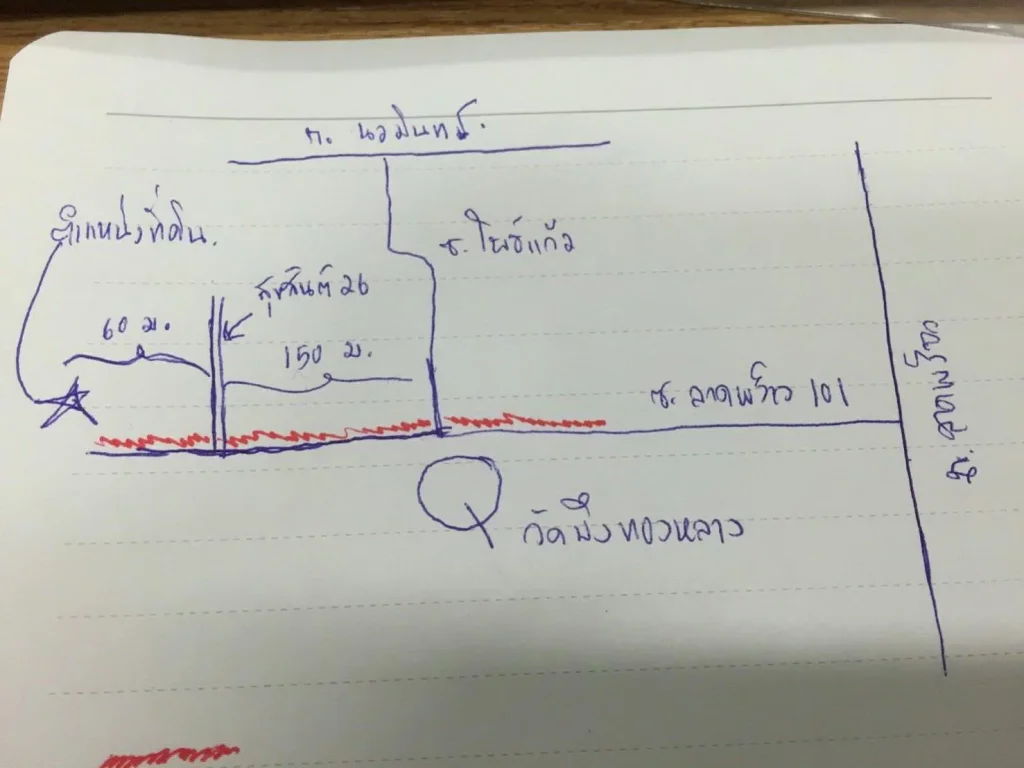 ถ. นวมินทร์.
ตำแหน่งที่ดิน.
ซ. โพธิ์แก้ว
สุขสันต์ 26
60 ม.
150 ม.
ซ. ลาดพร้าว 101
ถ. ลาดพร้าว
วัดบึงทองหลาง